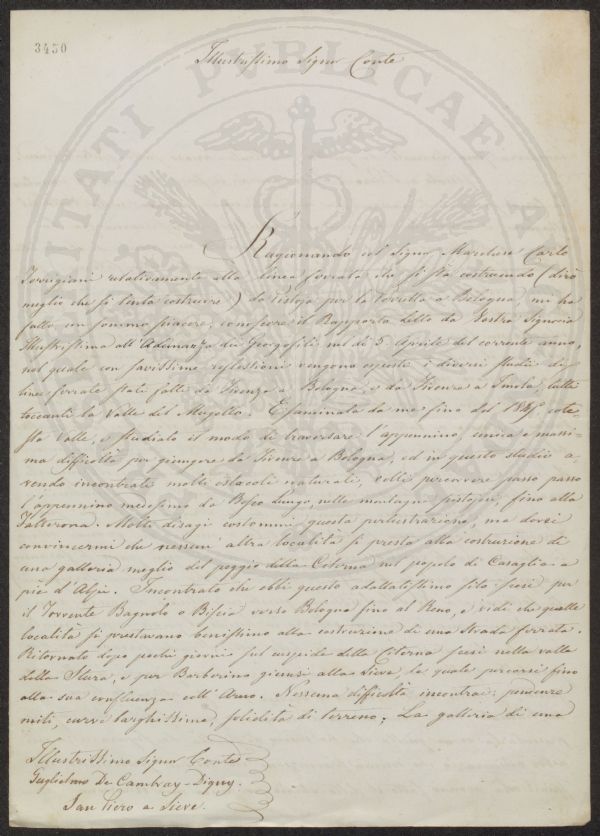 3430
Illustrissimo Signor Conte
Ragionando col Signor Marchese Carlo
Torrigiani relativamente alla linea ferrata che si sta costruendo (dirò
meglio che si tenta costruire) da Pistoja per la Porretta a Bologna, mi ha
fatto un sommo piacere, conoscere il Rapporto letto da Vostra Signoria
Illustrissima all'Adunanza dei Georgofili nel dì 5 Aprile del corrente anno,
nel quale con savissime reflessioni vengono esposti i diversi studii di
linee ferrate stati fatti da Firenze a Bologna, e da Firenze a Imola, tutte
toccanti la Valle del Mugello. Esaminata da me fino del 1845 cote
sta Valle, e studiato il modo di traversare l'appennino, unica e massi-
ma difficoltà per giungere da Firenze a Bologna, ed in questo studio a-
vendo incontrati molti ostacoli naturali, volli percorrere passo passo
l'appennino medesimo da Bosco Lungo, nelle montagne pistojesi, fino alla
Falterona. Molti disagi costommi questa perlustrazione, ma dovei
convincermi che nessun' altra località si presta alla costruzione di
una galleria meglio del poggio della Citerna nel popolo di Casaglia a
piè d'Alpi. Incontrato ch' ebbi questo adattatissimo sito scesi per
il Torrente Bagnolo o Biscia verso Bologna fino al Reno, e vidi che quelle
località si prestavano benissimo alla costruzione di una Strada ferrata.
Ritornato dopo pochi giorni sul cuspide della Citerna scesi nella valle
della Stura, e per Barberino giunsi alla Sieve, la quale percorsi fino
alla sua confluenza coll' Arno. Nessuna difficoltà incontrai; pendenze
miti, curve larghissime, solidità di terreno; La galleria di una
Illustrissimo Signor Conte
Guglielmo De Cambray-Digny.
San Piero a Sieve.
ITATI PUBLICAE